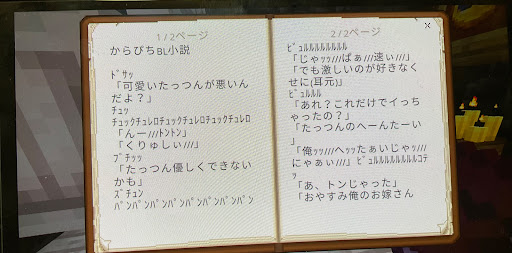 1 / 2ページ
からぴちBL小説
ﾄﾞｻｯ
「可愛いたっつんが悪いん
だよ?」
ﾁｭｯ
ﾁｭｯｸﾁｭﾚﾛﾁｭｯｸﾁｭﾚﾛﾁｭｯｸﾁｭﾚﾛ
「んー///ﾄﾝﾄﾝ」
「くりゅしぃ///」
ﾌﾟﾁｯｯ
「たっつん優しくできない
かも」
ｽﾞﾁｭﾝ
ﾊﾟﾝﾊﾟﾝﾊﾟﾝﾊﾟﾝﾊﾟﾝﾊﾟﾝﾊﾟﾝﾊﾟﾝ
2 / 2ページ
ﾋﾞｭﾙﾙﾙﾙﾙﾙﾙﾙ
「じゃｯｯ///ばぁ///速ぃ///」
「でも激しいのが好きなく
せに(耳元)」
ﾋﾞｭﾙﾙﾙ
「あれ？これだけでイっち
ゃったの？」
「たっつんのへーんたーい
」
「俺ｯｯ///へｯｯたぁいじゃｯ///
にゃぁぃ///」ﾋﾞｭﾙﾙﾙﾙﾙﾙﾙﾙｺﾃ
ｯ
「あ、トンじゃった」
「おやすみ俺のお嫁さん